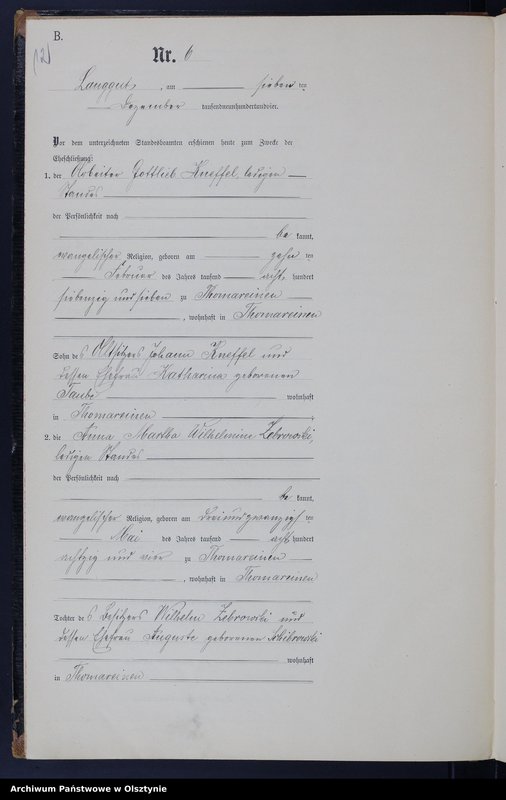 B.
(12)
Nr. 6
Langgut, am sieben ten
Dezember tausendneunhundertundvier.
Vor dem unterzeichneten Standesbeamten erschienen heute zum Zwecke der
Eheschließung:
1. der Arbeiter Gottlieb Kneffel, ledigen
Standes
der Persönlichkeit nach
be kannt,
evangelischer Religion, geboren am zehn ten
Februar des Jahres tausend acht hundert
siebenzig und sieben zu Thomareinen
, wohnhaft in Thomareinen
Sohn des Altsitzers Johann Kneffel und
dessen Ehefrau Katharina geborenen
Taube wohnhaft
in Thomareinen
2. die Anna Martha Wilhelmine Zebrowski,
ledigen Standes
der Persönlichkeit nach
be kannt,
evangelischer Religion, geboren am dreiundzwanzigsten
Mai des Jahres tausend acht hundert
achtzig und vier zu Thomareinen
, wohnhaft in Thomareinen
Tochter des Besitzers Wilhelm Zebrowski und
dessen Ehefrau Auguste geborenen
wohnhaft
in Thomareinen
Archiwum Państwowe w Olsztynie